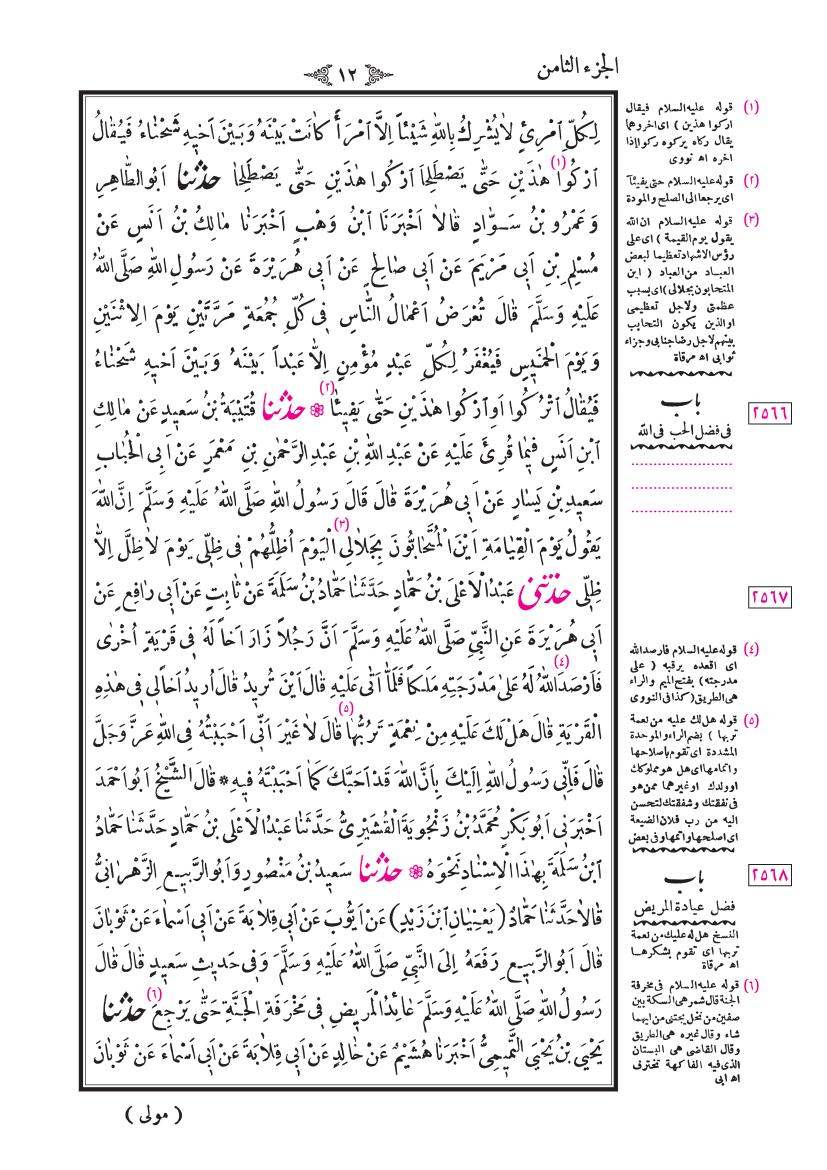 الجزء الثامن
١٢
لِكُلِّ امْرِئٍ لَا يُشْرِكُ بِاللّٰهِ شَيْئاً اِلَّا امْرَأً كَانَتْ بَيْنَهُ وَبَيْنَ اَخِيهِ شَحْنَاءُ فَيُقَالُ
ارْكُوا (١) هٰذَيْنِ حَتَّى يَصْطَلِحَا ارْكُوا هٰذَيْنِ حَتَّى يَصْطَلِحَا حدثنا اَبُو الطَّاهِرِ
وَعَمْرُو بْنُ سَوَّادٍ قَالَا اَخْبَرَنَا ابْنُ وَهْبٍ اَخْبَرَنَا مَالِكُ بْنُ اَنَسٍ عَنْ
مُسْلِمِ بْنِ اَبِي مَرْيَمَ عَنْ اَبِي صَالِحٍ عَنْ اَبِي هُرَيْرَةَ عَنْ رَسُولِ اللّٰهِ صَلَّى اللّٰهُ
عَلَيْهِ وَسَلَّمَ قَالَ تُعْرَضُ اَعْمَالُ النَّاسِ فِي كُلِّ جُمُعَةٍ مَرَّتَيْنِ يَوْمَ الِاثْنَيْنِ
وَيَوْمَ الْخَمِيسِ فَيُغْفَرُ لِكُلِّ عَبْدٍ مُؤْمِنٍ اِلَّا عَبْداً بَيْنَهُ وَبَيْنَ اَخِيهِ شَحْنَاءُ
فَيُقَالُ اتْرُكُوا اَوِ ارْكُوا هٰذَيْنِ حَتَّى يَفِيئَا (٢) حدثنا قُتَيْبَةُ بْنُ سَعِيدٍ عَنْ مَالِكِ
ابْنِ اَنَسٍ فِيمَا قُرِئَ عَلَيْهِ عَنْ عَبْدِ اللّٰهِ بْنِ عَبْدِ الرَّحْمٰنِ بْنِ مَعْمَرٍ عَنْ اَبِي الْحُبَابِ
سَعِيدِ بْنِ يَسَارٍ عَنْ اَبِي هُرَيْرَةَ قَالَ قَالَ رَسُولُ اللّٰهِ صَلَّى اللّٰهُ عَلَيْهِ وَسَلَّمَ اِنَّ اللّٰهَ
يَقُولُ يَوْمَ الْقِيَامَةِ اَيْنَ الْمُتَحَابُّونَ بِجَلَالِي (٣) الْيَوْمَ اُظِلُّهُمْ فِي ظِلِّي يَوْمَ لَا ظِلَّ اِلَّا
ظِلِّي حدثني عَبْدُ الْاَعْلَى بْنُ حَمَّادٍ حَدَّثَنَا حَمَّادُ بْنُ سَلَمَةَ عَنْ ثَابِتٍ عَنْ اَبِي رَافِعٍ عَنْ
اَبِي هُرَيْرَةَ عَنِ النَّبِيِّ صَلَّى اللّٰهُ عَلَيْهِ وَسَلَّمَ اَنَّ رَجُلاً زَارَ اَخاً لَهُ فِي قَرْيَةٍ اُخْرٰى
فَاَرْصَدَ اللّٰهُ (٤) لَهُ عَلٰى مَدْرَجَتِهِ مَلَكاً فَلَمَّا اَتٰى عَلَيْهِ قَالَ اَيْنَ تُرِيدُ قَالَ اُرِيدُ اَخاً لِي فِي هٰذِهِ
الْقَرْيَةِ قَالَ هَلْ لَكَ عَلَيْهِ مِنْ نِعْمَةٍ تَرُبُّهَا (٥) قَالَ لَا غَيْرَ اَنِّي اَحْبَبْتُهُ فِي اللّٰهِ عَزَّ وَجَلَّ
قَالَ فَاِنِّي رَسُولُ اللّٰهِ اِلَيْكَ بِاَنَّ اللّٰهَ قَدْ اَحَبَّكَ كَمَا اَحْبَبْتَهُ فِيهِ * قَالَ الشَّيْخُ اَبُو اَحْمَدَ
اَخْبَرَنِي اَبُو بَكْرٍ مُحَمَّدُ بْنُ زَنْجُويَةَ الْقُشَيْرِيُّ حَدَّثَنَا عَبْدُ الْاَعْلَى بْنُ حَمَّادٍ حَدَّثَنَا حَمَّادُ
ابْنُ سَلَمَةَ بِهٰذَا الْاِسْنَادِ نَحْوَهُ حدثنا سَعِيدُ بْنُ مَنْصُورٍ وَاَبُو الرَّبِيعِ الزَّهْرَانِيُّ
قَالَا حَدَّثَنَا حَمَّادٌ (يَعْنِيَانِ ابْنَ زَيْدٍ) عَنْ اَيُّوبَ عَنْ اَبِي قِلَابَةَ عَنْ اَبِي اَسْمَاءَ عَنْ ثَوْبَانَ
قَالَ اَبُو الرَّبِيعِ رَفَعَهُ اِلَى النَّبِيِّ صَلَّى اللّٰهُ عَلَيْهِ وَسَلَّمَ وَفِي حَدِيثِ سَعِيدٍ قَالَ قَالَ
رَسُولُ اللّٰهِ صَلَّى اللّٰهُ عَلَيْهِ وَسَلَّمَ عَائِدُ الْمَرِيضِ فِي مَخْرَفَةِ الْجَنَّةِ حَتَّى يَرْجِعَ (٦) حدثنا
يَحْيَى بْنُ يَحْيَى التَّمِيمِيُّ اَخْبَرَنَا هُشَيْمٌ عَنْ خَالِدٍ عَنْ اَبِي قِلَابَةَ عَنْ اَبِي اَسْمَاءَ عَنْ ثَوْبَانَ
( مولى )
(١) قوله عليه السلام فيقال
اركوا هذين ) اى اخروهما
يقال ركاه يركوه ركوا اذا
اخره اه نووى
(٢) قوله عليه السلام حتى يفيئا
اى يرجعا الى الصلح والمودة
(٣) قوله عليه السلام ان الله
يقول يوم القيمة ) اى على
رؤس الاشهاد تعظيما لبعض
العباد من العباد ( اين
المتحابون بجلالى ) اى بسبب
عظمتى ولاجل تعظيمى
او الذين يكون التحابب
بينهم لاجل رضا جنابى وجزاء
ثوابى اه مرقاة
باب
فى فضل الحب فى الله
٢٥٦٦
٢٥٦٧
(٤) قوله عليه السلام فارصد الله
اى اقعده يرقبه ( على
مدرجته ) بفتح الميم والراء
هى الطريق ( كذا فى النووى
(٥) قوله هل لك عليه من نعمة
تربها ) بضم الراء والموحدة
المشددة اى تقوم باصلاحها
واتمامها اى هل هو مملوكك
او ولدك او غيرهما ممن هو
فى نفقتك وشفقتك لتحسن
اليه من رب فلان الضيعة
اى اصلحها واتمها وفى بعض
باب
فضل عيادة المريض
٢٥٦٨
النسخ هل له عليك من نعمة
تربها اى تقوم بشكرها
اه مرقاة
(٦) قوله عليه السلام فى مخرفة
الجنة قال شمر هى السكة بين
صفين من نخل يجتنى من ايهما
شاء وقال غيره هى الطريق
وقال القاضى هى البستان
الذى فيه الفاكهة تخترف
اه ابى